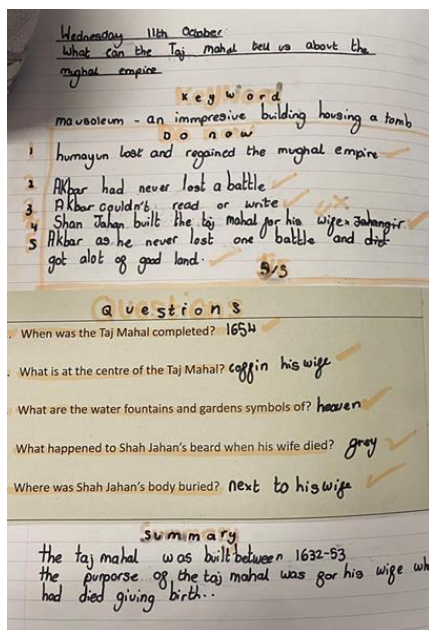 Wednesday 11th October
What can the Taj mahal tell us about the
mughal empire
Keyword
mausoleum - an immpresive building housing a tomb
Do now
1 humayun lost and regained the mughal empire
2 AKbar had never lost a battle
3 AKbar couldn't read or write
4 Shan Jahan built the taj mahal for his wife x Jahangir
5 AKbar as he never lost one battle and did
got alot of good land.
5/5
Questions
. When was the Taj Mahal completed? 1654
. What is at the centre of the Taj Mahal? coffin his wife
What are the water fountains and gardens symbols of? heaven
What happened to Shah Jahan's beard when his wife died? grey
Where was Shah Jahan's body buried? next to his wife
Summary
the taj mahal was built between 1632-53
the purporse of the taj mahal was for his wife wh
had died giving birth..